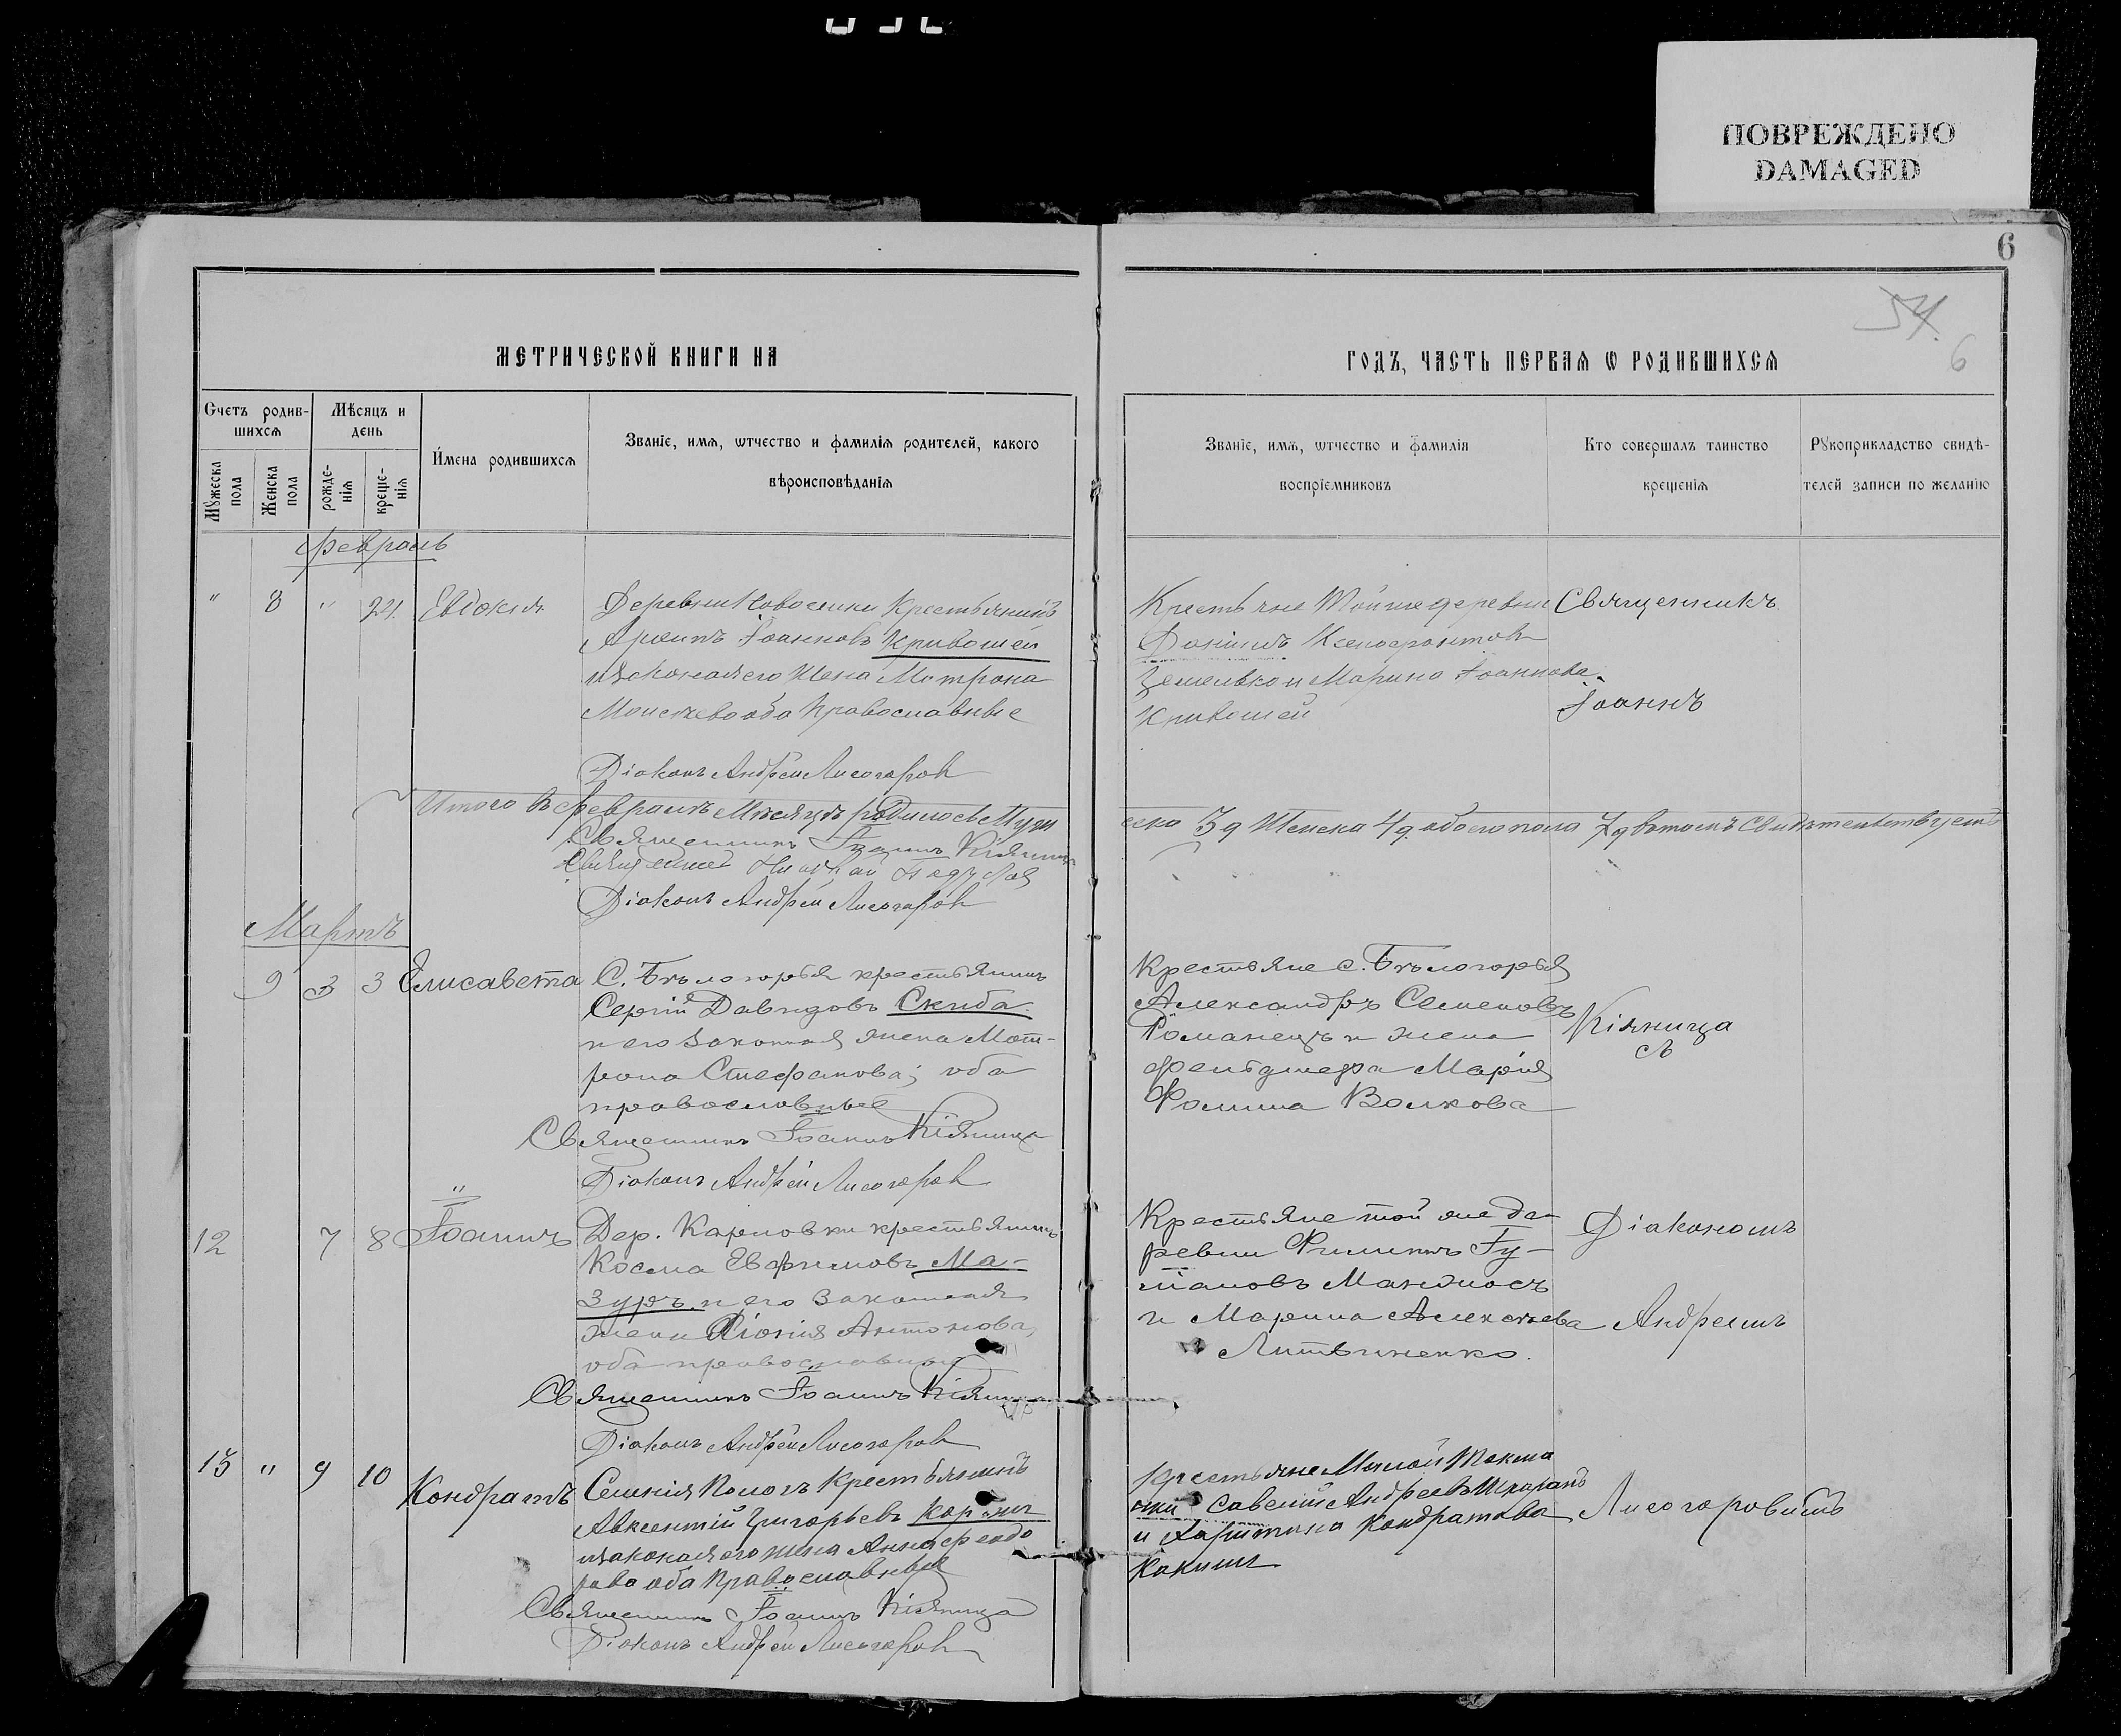 ПОВРЕЖДЕНО
DAMAGED
6
54
6
МЕТРИЧЕСКОЙ КНИГИ НА
ГОДЪ, ЧАСТЬ ПЕРВАѦ Ѡ РОДИВШИХСѦ
Счетъ родив-
шихсѧ
Мꙋжеска
пола
Женска
пола
Мѣсяцъ и
день
рожде-
нїѧ
креще-
нїѧ
Имена родившихсѧ
Званїе, имѧ, ѡтчество и фамилїѧ родителей, какого
вѣроисповѣданїѧ
Званїе, имѧ, ѡтчество и фамилїѧ
воспрїемниковъ
Кто совершалъ таинство
крещенїѧ
Рꙋкоприкладство свидѣ-
телей записи по желанїю
Февраль
" 8 " 21. Евдокія
Деревни Новоселки Крестьянинъ
Іоанновъ Кривошей
изаконая его Жена Матрона
оба Православные
Діаконъ Андрей Лисогоров
Крестьяне Тойже деревни
Даніилъ Ксенофонтов
и Марина Іоаннова
Кривошей
Священникъ
Іоаннъ
Итого въ Февралѣ Мѣсяцѣ родилось Муж
еска 3 д Женска 4 д. обоего пола 7 д вътомъ Свидѣтельствуетъ
Священникъ Іоаннъ Кіяница
Діаконъ Андрей Лисогоров
Мартъ
9 3 3 Елисавета
С. Бѣлогорья крестьянинъ
Сергій Давидовъ Скиба
и его законная жена Мат-
рона Стефанова; оба
православные
Священникъ Іоаннъ Кіяница
Діаконъ Андрей Лисогоров
Крестьяне с. Бѣлогорья
Александръ Семеновъ
Романецъ и жена
фельдшера Марія
Фомина Волкова
Кіяница
съ
"
12 7 8 Іоаннъ
Дер. Карповки крестьянинъ
Косма Евфимовъ Ма-
зуръ и его законная
жена Хіонія Антонова,
оба православные
Священникъ Іоаннъ Кіяница
Діаконъ Андрей Лисогоров
Крестьяне той же де-
ревни Филиппъ Іу-
ліановъ
и Марина Алексѣева
Литвиненко.
Діакономъ
Андреемъ
13 " 9 10 Кондратъ
Крестьянинъ
Авксентій Григорьевъ
изаконая его жена Анна Федо
рова оба Православные
Священникъ Іоаннъ Кіяница
Діаконъ Андрей Лисогоров
Крестьяне
Савелій Андреевъ
и Харитина Кондратова
Лисогоровымъ